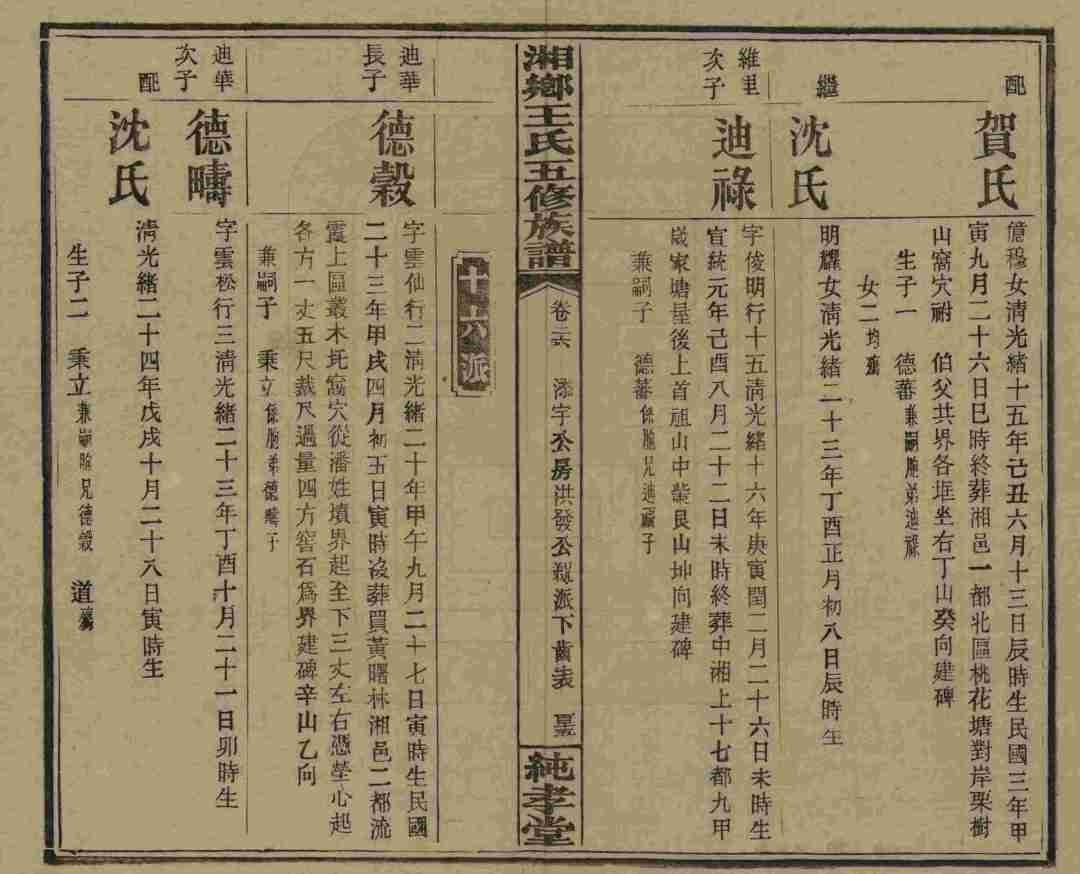 配
賀氏
儋穆女淸光緖十五年己丑六月十三日辰時生民國三年甲
寅九月二十六日巳時終葬湘邑一都北區桃花塘對岸栗樹
山窩穴祔 伯父共界各堆坐右丁山癸向建碑
生子一 德蕃兼嗣胞弟迪祿
女二均殤
繼
沈氏
明耀女淸光緖二十三年丁酉正月初八日辰時生
維里
次子
迪祿
字俊明行十五淸光緖十六年庚寅閏二月二十六日未時生
宣統元年己酉八月二十二日未時終葬中湘上十七都九甲
家塘屋後上首祖山中塋艮山坤向建碑
兼嗣子 德蕃係胞兄迪子
湘鄉王氏五修族譜
卷三六
添字公房洪發公派下齒表
純孝堂
十六派
迪華
長子
德穀
字雲仙行二淸光緖二十年甲午九月二十七日寅時生民國
二十三年甲戌四月初五日寅時沒葬買黃曙林湘邑二都流
霞上區叢木圫窩穴從潘姓墳界起至下三丈左右憑塋心起
各方一丈五尺裁尺過量四方窖石爲界建碑辛山乙向
兼嗣子 秉立係胞弟德疇子
迪華
次子
德疇
字雲松行三淸光緖二十三年丁酉十月二十一日卯時生
配
沈氏
淸光緖二十四年戊戌十月二十八日寅時生
生子二 秉立兼嗣胞兄德穀 道殤